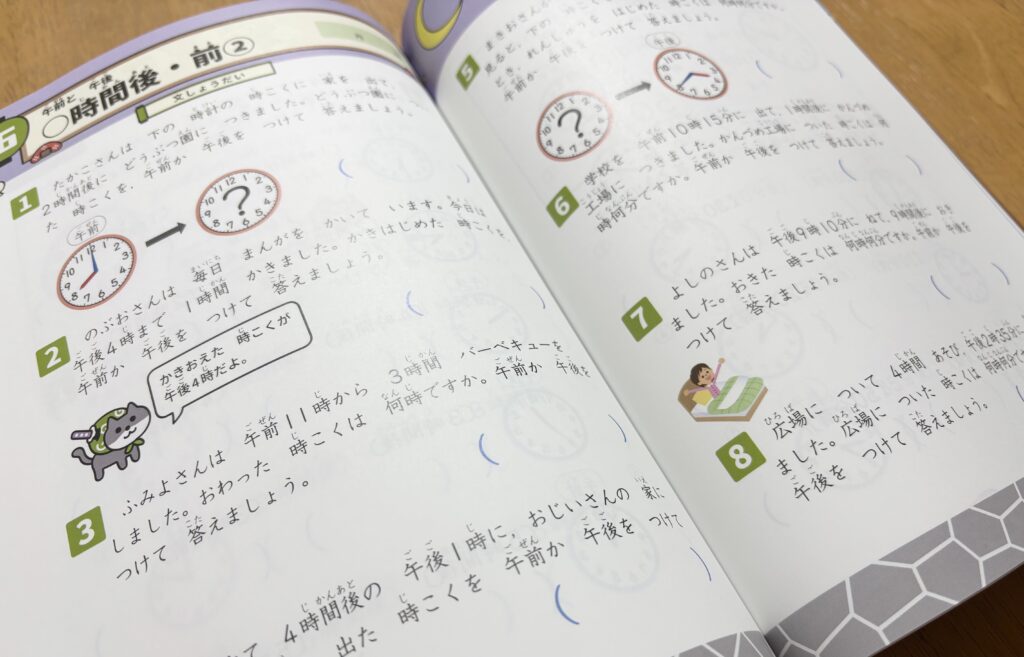 午前と 午後
○時間後・前②
文しょうだい
月
6
1
たかこさんは 下の 時計の 時こくに 家を 出て、
2時間後に どうぶつ園に つきました。どうぶつ園に
た 時こくを、午前か 午後を つけて 答えましょう。
午前
?
2
のぶおさんは 毎日 まんがを かいて います。今日は
午後4時まで 1時間 かきました。かきはじめた 時こくを、
午前か 午後を つけて 答えましょう。
かきおえた 時こくが
午後4時だよ。
3
ふみよさんは 午前11時から 3時間 バーベキューを
しました。おわった 時こくは 何時ですか。午前か 午後を
つけて 答えましょう。
4時間後の 午後1時に、おじいさんの 家に
出た 時こくを 午前か 午後を つけて
5
まきおさんが
見ると、下の
どき、れんしゅうを はじめた 時こくは 何時何分ですか。
午前か 午後を つけて 答えましょう。
?
午後
6
学校を 午前10時15分に 出て、1時間後に かんづめ
工場に つきました。かんづめ工場に ついた 時こくは 何
時何分ですか。午前か 午後を つけて 答えましょう。
7
よしのさんは 午後9時10分に ねて、9時間後に おき
ました。おきた 時こくは 何時何分ですか。午前か 午後を
つけて 答えましょう。
8
広場に ついて 4時間 あそび、午後2時35分に
ました。広場に ついた 時こくは 何時何分ですか。
午後を つけて 答えましょう。